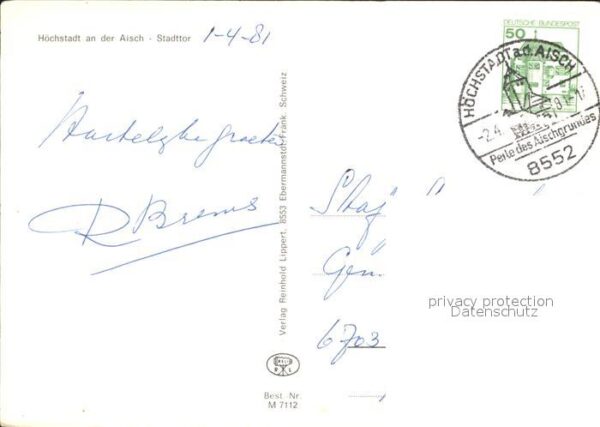 Höchstadt an der Aisch - Stadttor
1-4-81
Hartelijke groeten
R Brems
Verlag Reinhold Lippert, 8553 Ebermannstdt Fränk. Schweiz
R L
Best Nr.
M 7112
DEUTSCHE BUNDESPOST
50
HÖCHSTADT a.d. AISCH
-2.4.
Perle des Aischgrundes
8552
6703
privacy protection
Datenschutz